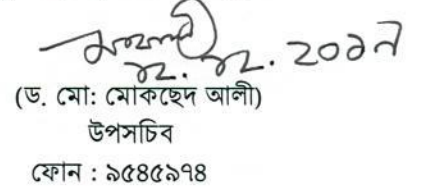 ১২.১২.২০১৭
(ড. মো: মোকছেদ আলী)
উপসচিব
ফোন : ৯৫৪৫৯৭৪